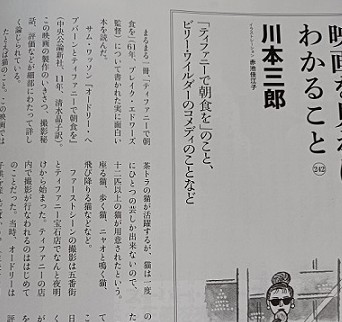 映画を見れば
わかること
242
川本三郎
イラストレーション●赤池佳江子
「ティファニーで朝食を」のこと、
ビリー・ワイルダーのコメディのことなど
まるまる一冊「ティファニーで朝
食を」(61年、ブレイク・エドワーズ
監督)について書かれた実に面白い
本を読んだ。
サム・ワッソン『オードリー・ヘ
プバーンとティファニーで朝食を』
(中央公論新社、11年、清水晶子訳)。
この映画の製作のいきさつ、撮影秘
話、評価などが細部にわたって詳し
く論じられている。
たとえば猫のこと。この映画では
茶トラの猫が活躍するが、猫は一度
にひとつの芸しか出来ないので、
十二匹以上の猫が用意されたという。
座る猫、歩く猫、ニャオと鳴く猫、
飛び降りる猫などなど。
ファーストシーンの撮影は五番街
とティファニー宝石店でなんと夜明
けから始まった。ティファニーの店
内で撮影が行なわれるのははじめて
のことだった。当時、オードリーは